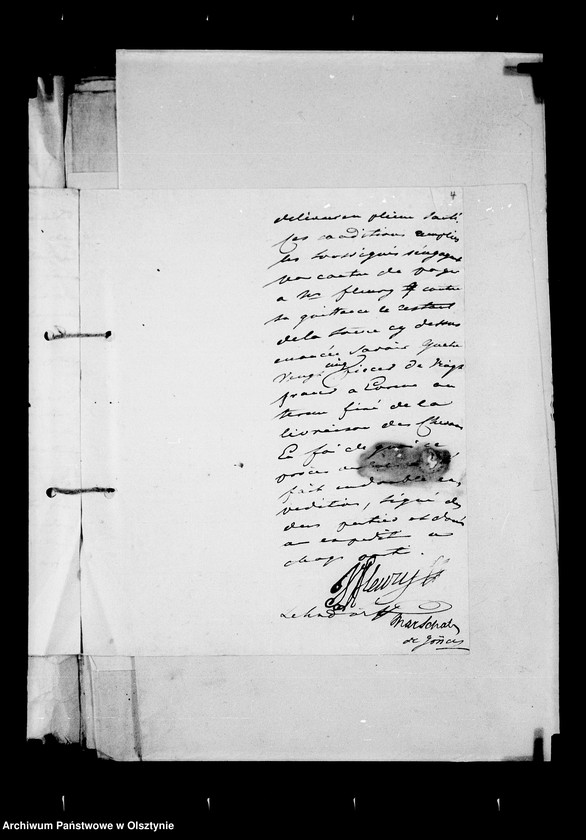 4
delivrer en pleine santé.
Ces conditions remplies
les soussignés s'engagent
par contre de payer
a Mr fleury contre
sa quittance le restant
de la somme cy dessus
enoncée, savoir Quatre
Vingt cinq pieces de Vingt
francs a
terme fixé de la
livraison des Chevaux
En foi de quoi ce
fait en double ex
pedition, signé des
deux parties et dont
un expedié a
chaque parti.
Fleury
Lehndorff
Marschal
de
Archiwum Państwowe w Olsztynie